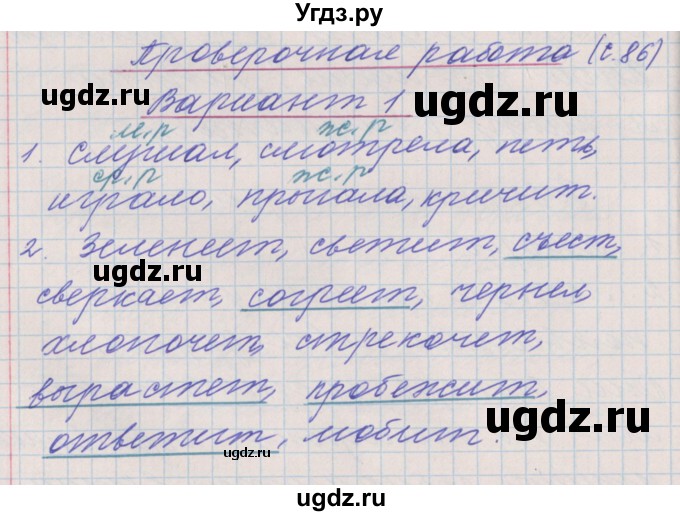 Угдз.ру
Проверочная работа (с.86)
ugdz.ru
Вариант 1
ugdz.ru
м.р ж.р
1. слушал, смотрела, петь,
ugdz.ru
ср.р ж.р
играло, прыгала, кричит.
ugdz.ru
2. Зеленеет, светит, съест,
ugdz.ru
сверкает, согреет, чернел,
хлопочет, стрекочет,
вырастет, пробежит,
ugdz.ru
ответит, любит.
ugdz.ru
ugdz.ru